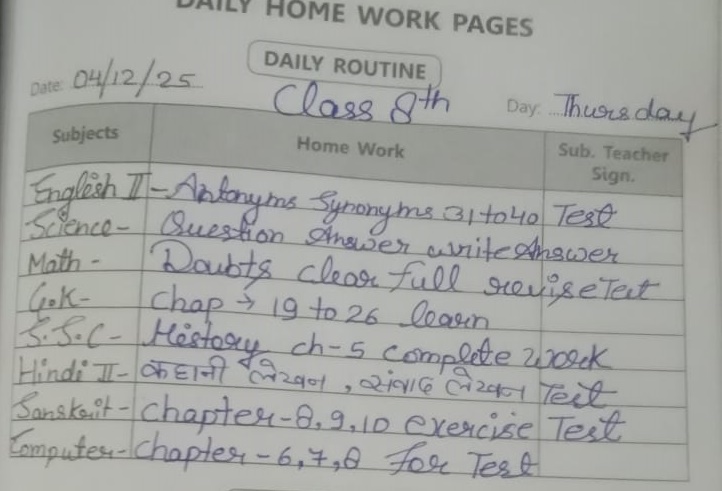 DAILY HOME WORK PAGES
DAILY ROUTINE
Date: 04/12/25
Class 8th
Day: Thursday
Subjects
Home Work
Sub. Teacher
Sign.
English II - Antonyms Synonyms 31 to 40 Test
Science - Question Answer write Answer
Math - Doubts clear full revise Test
G.K - Chap → 19 to 26 learn
S.S.C - History ch-5 complete work
Hindi II - कहानी लेखन, संवाद लेखन Test
Sanskrit - Chapter-8,9,10 exercise Test
Computer - Chapter-6,7,8 for Test